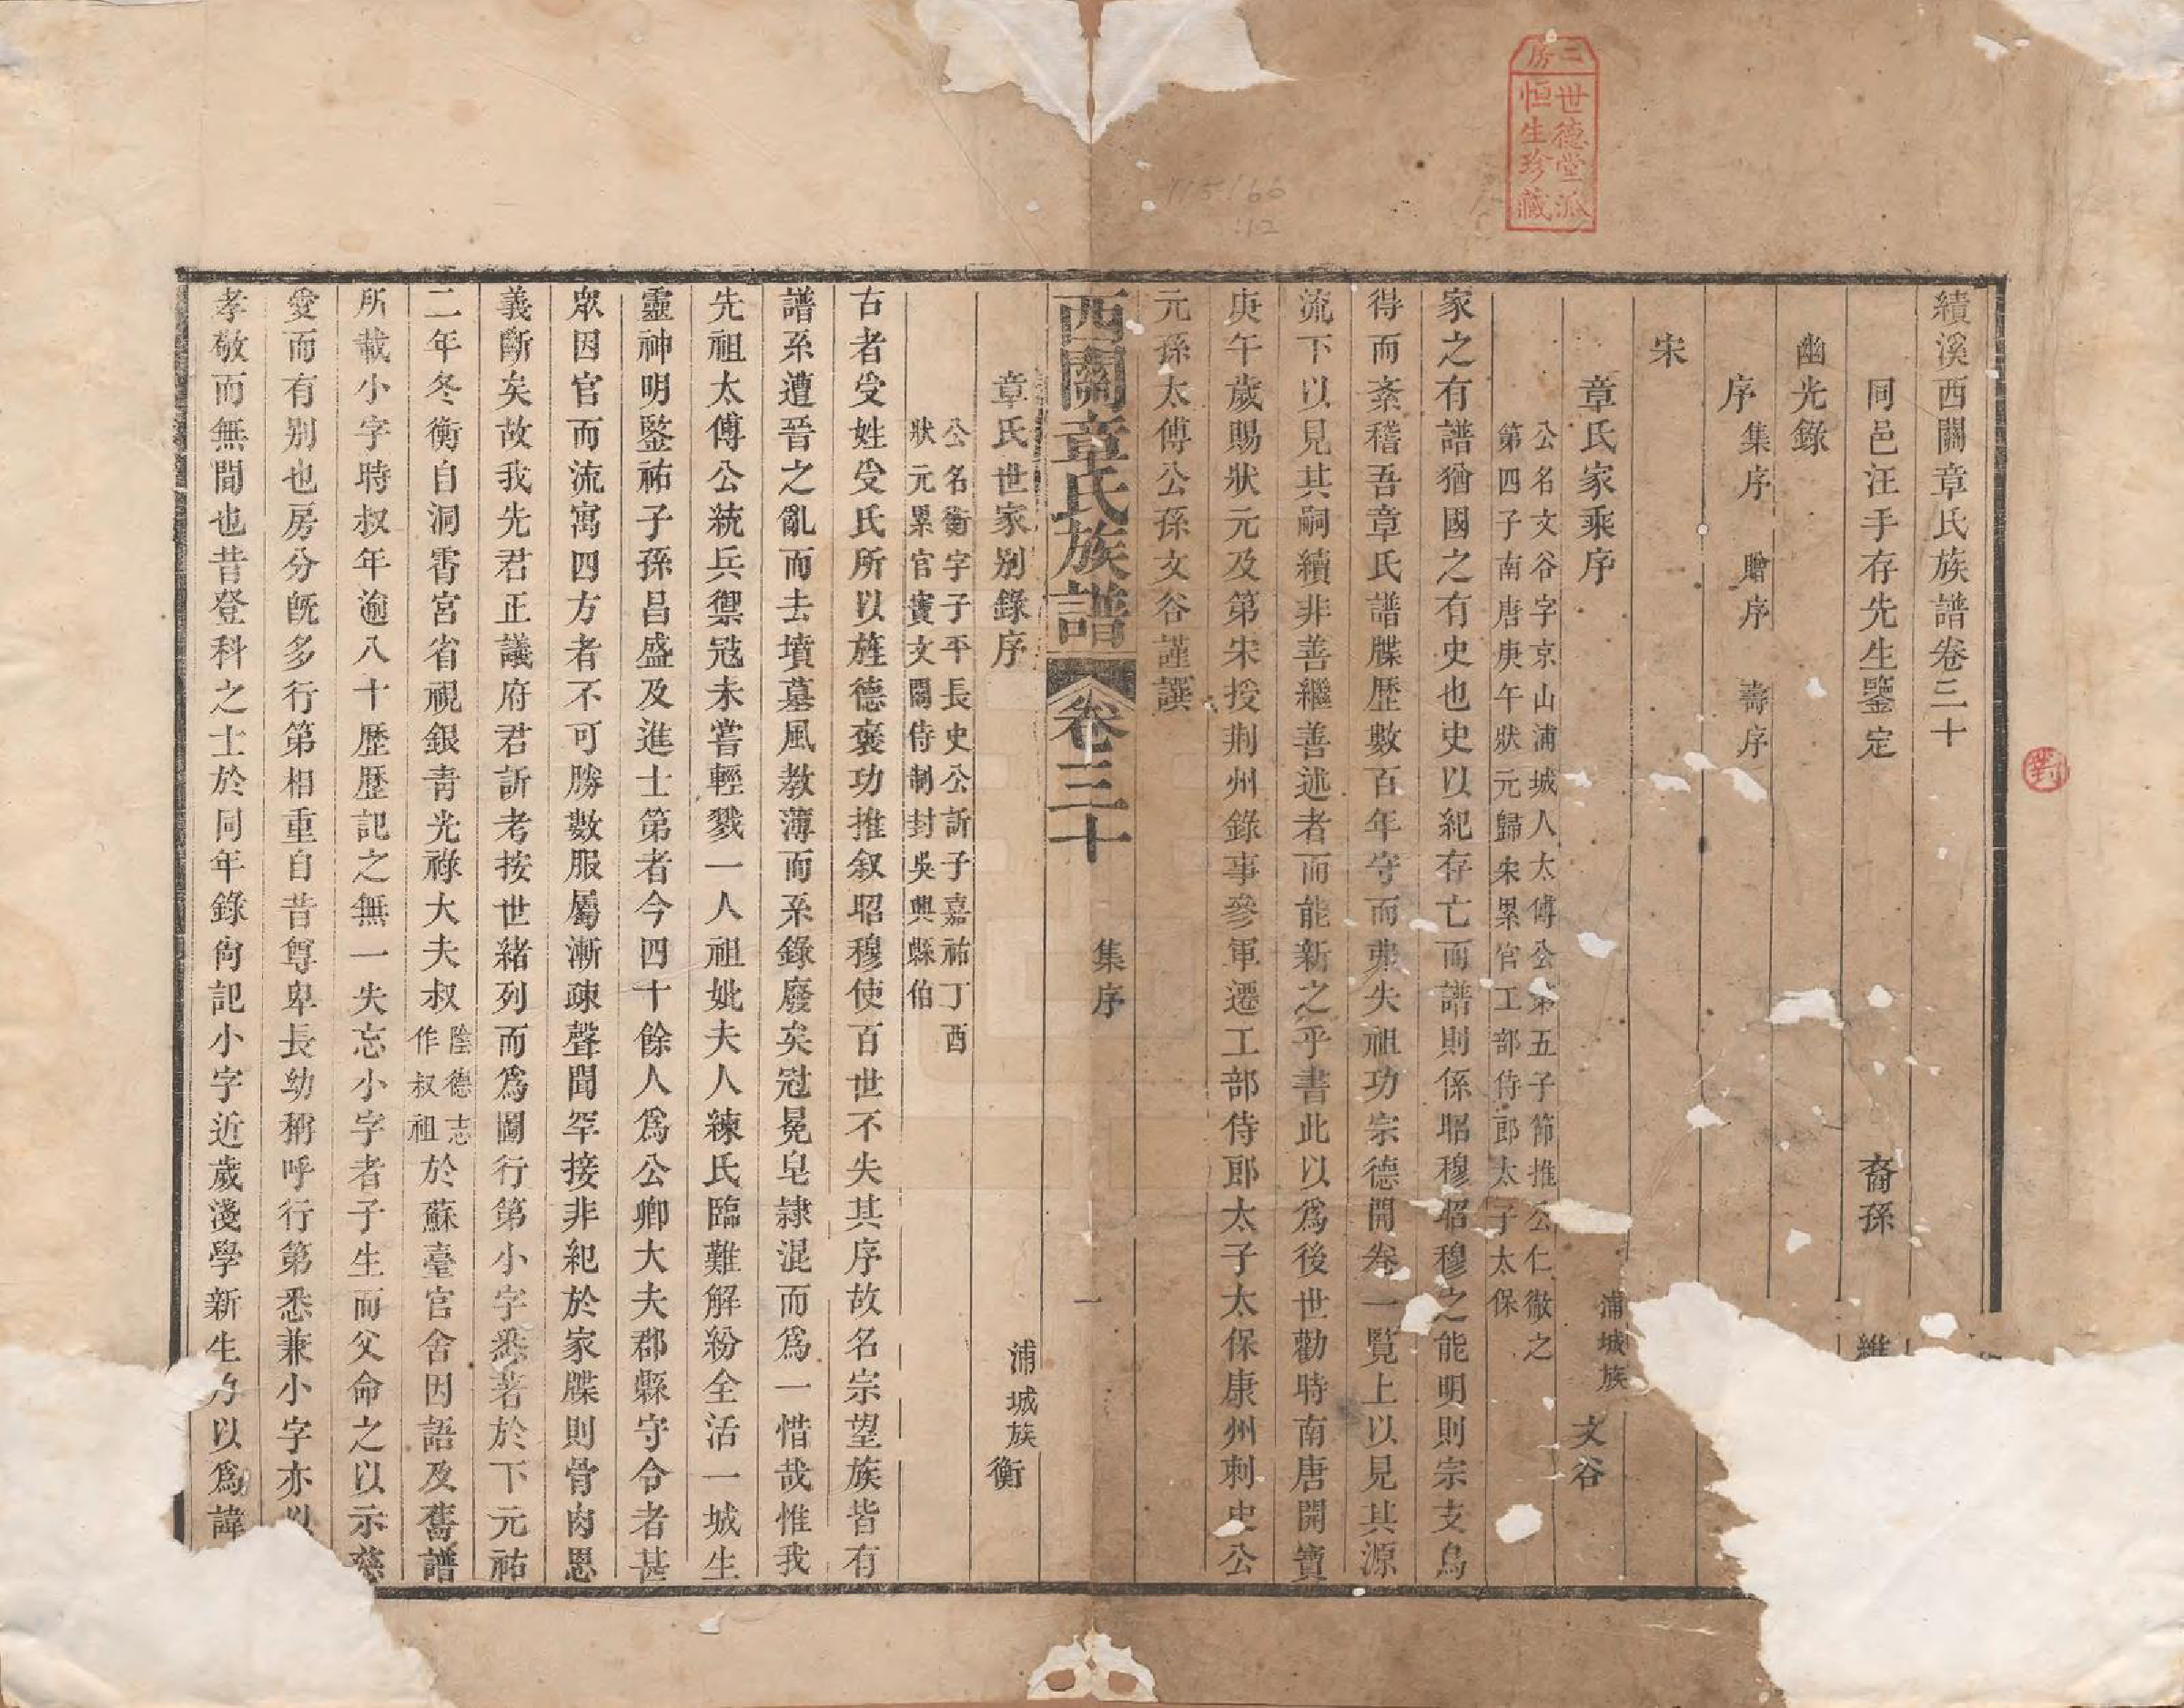 績溪西關章氏族譜卷三十
同邑汪手存先生鑒定　裔孫　維
幽光錄
序　集序　贈序　壽序
宋
章氏家乘序　浦城族　文谷
公名文谷字京山浦城人太傅公第五子節推公仁徹之
第四子南唐庚午狀元歸宋累官工部侍郎太子太保
家之有譜猶國之有史也史以紀存亡而譜則係昭穆昭穆之能明則宗支烏
得而紊稽吾章氏譜牒歷數百年守而弗失祖功宗德開卷一覽上以見其源
流下以見其嗣續非善繼善述者而能新之乎書此以爲後世勸時南唐開寶
庚午歲賜狀元及第宋授荆州錄事參軍遷工部侍郎太子太保康州刺史公
元孫太傅公孫文谷謹譔
西關章氏族譜　卷三十　集序　一
章氏世家別錄序　浦城族　衡
公名衡字子平長史公訢子嘉祐丁酉
狀元累官寶文閣侍制封吳興縣伯
古者受姓受氏所以旌德褒功推叙昭穆使百世不失其序故名宗望族皆有
譜系遭晉之亂而去墳墓風教薄而系錄廢矣冠冕皂隷混而爲一惜哉惟我
先祖太傅公統兵禦冦未嘗輕戮一人祖妣夫人練氏臨難解紛全活一城生
靈神明鑒祐子孫昌盛及進士第者今四十餘人爲公卿大夫郡縣守令者甚
衆因官而流寓四方者不可勝數服屬漸疎聲聞罕接非紀於家牒則骨肉恩
義斷矣故我先君正議府君訢考按世緒列而爲圖行第小字悉著於下元祐
二年冬衡自洞霄宮省視銀靑光祿大夫叔陰德志作叔祖於蘇臺官舍因語及舊譜
所載小字時叔年逾八十歷歷記之無一失忘小字者子生而父命之以示慈
愛而有别也房分旣多行第相重自昔尊卑長幼稱呼行第悉兼小字亦以
孝敬而無間也昔登科之士於同年錄尙記小字近歲淺學新生乃以爲諱
三房
世德堂派
恒生珍藏
對